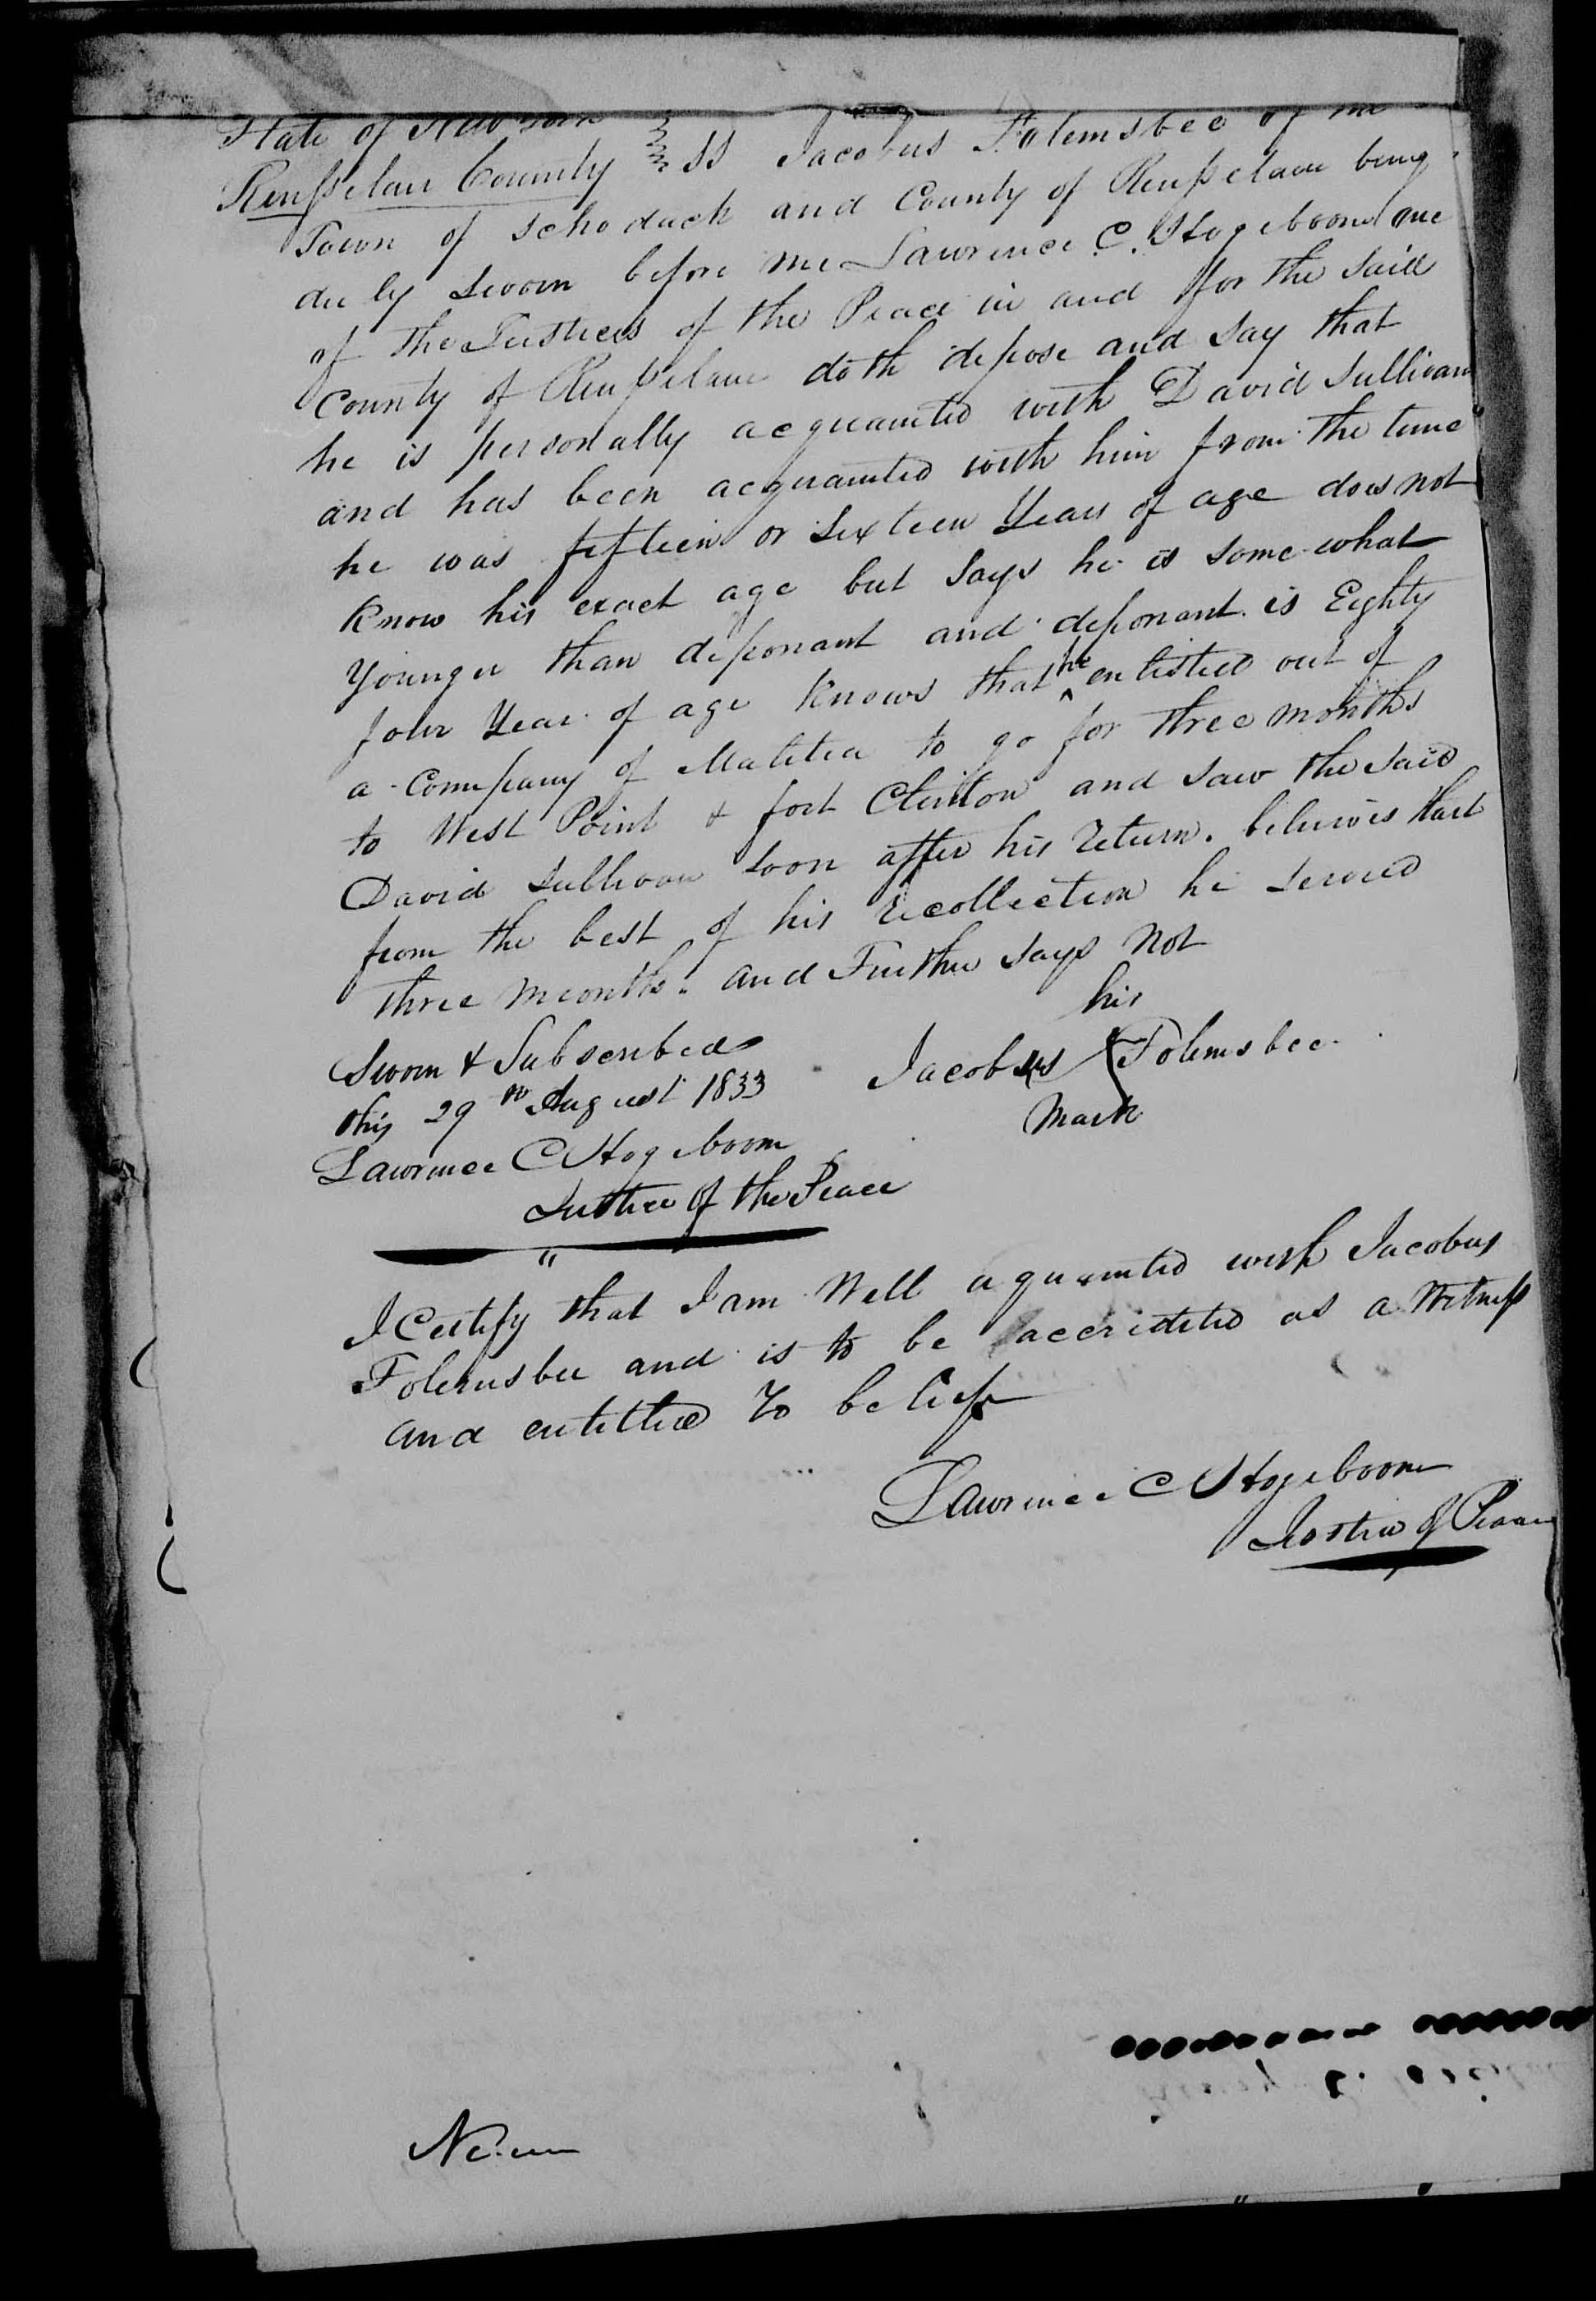 State of New York
Rensselaer County } SS Jacobus Folemsbee of the
Town of Schodack and County of Rensselaer being
duly sworn before me Lawrence C. Hogeboom one
of the Justices of the Peace in and for the said
County of Rensselaer doth depose and say that
he is personally acquainted with David Sullivan
and has been acquainted with him from the time
he was fifteen or Sixteen Years of age does not
know his exact age but says he is some what
Younger than deponant and deponant is Eighty
four Year of age knows that he enlisted out of
a Company of Malitia to go for three months
to West Point & fort Clinton and saw the said
David Sullivan soon after his return. believes that
from the best of his recollection he served
three months. and Further says not
his
Sworn & Subscribed Jacobus Folemsbee
this 29th August 1833 mark
Lawrence C Hogeboom
Justice of the Peace
I Certify that I am Well aquainted with Jacobus
Folemsbee and is to be accridited as a Witness
and entitled To belief
Lawrence C Hogeboom
Justice of Peace